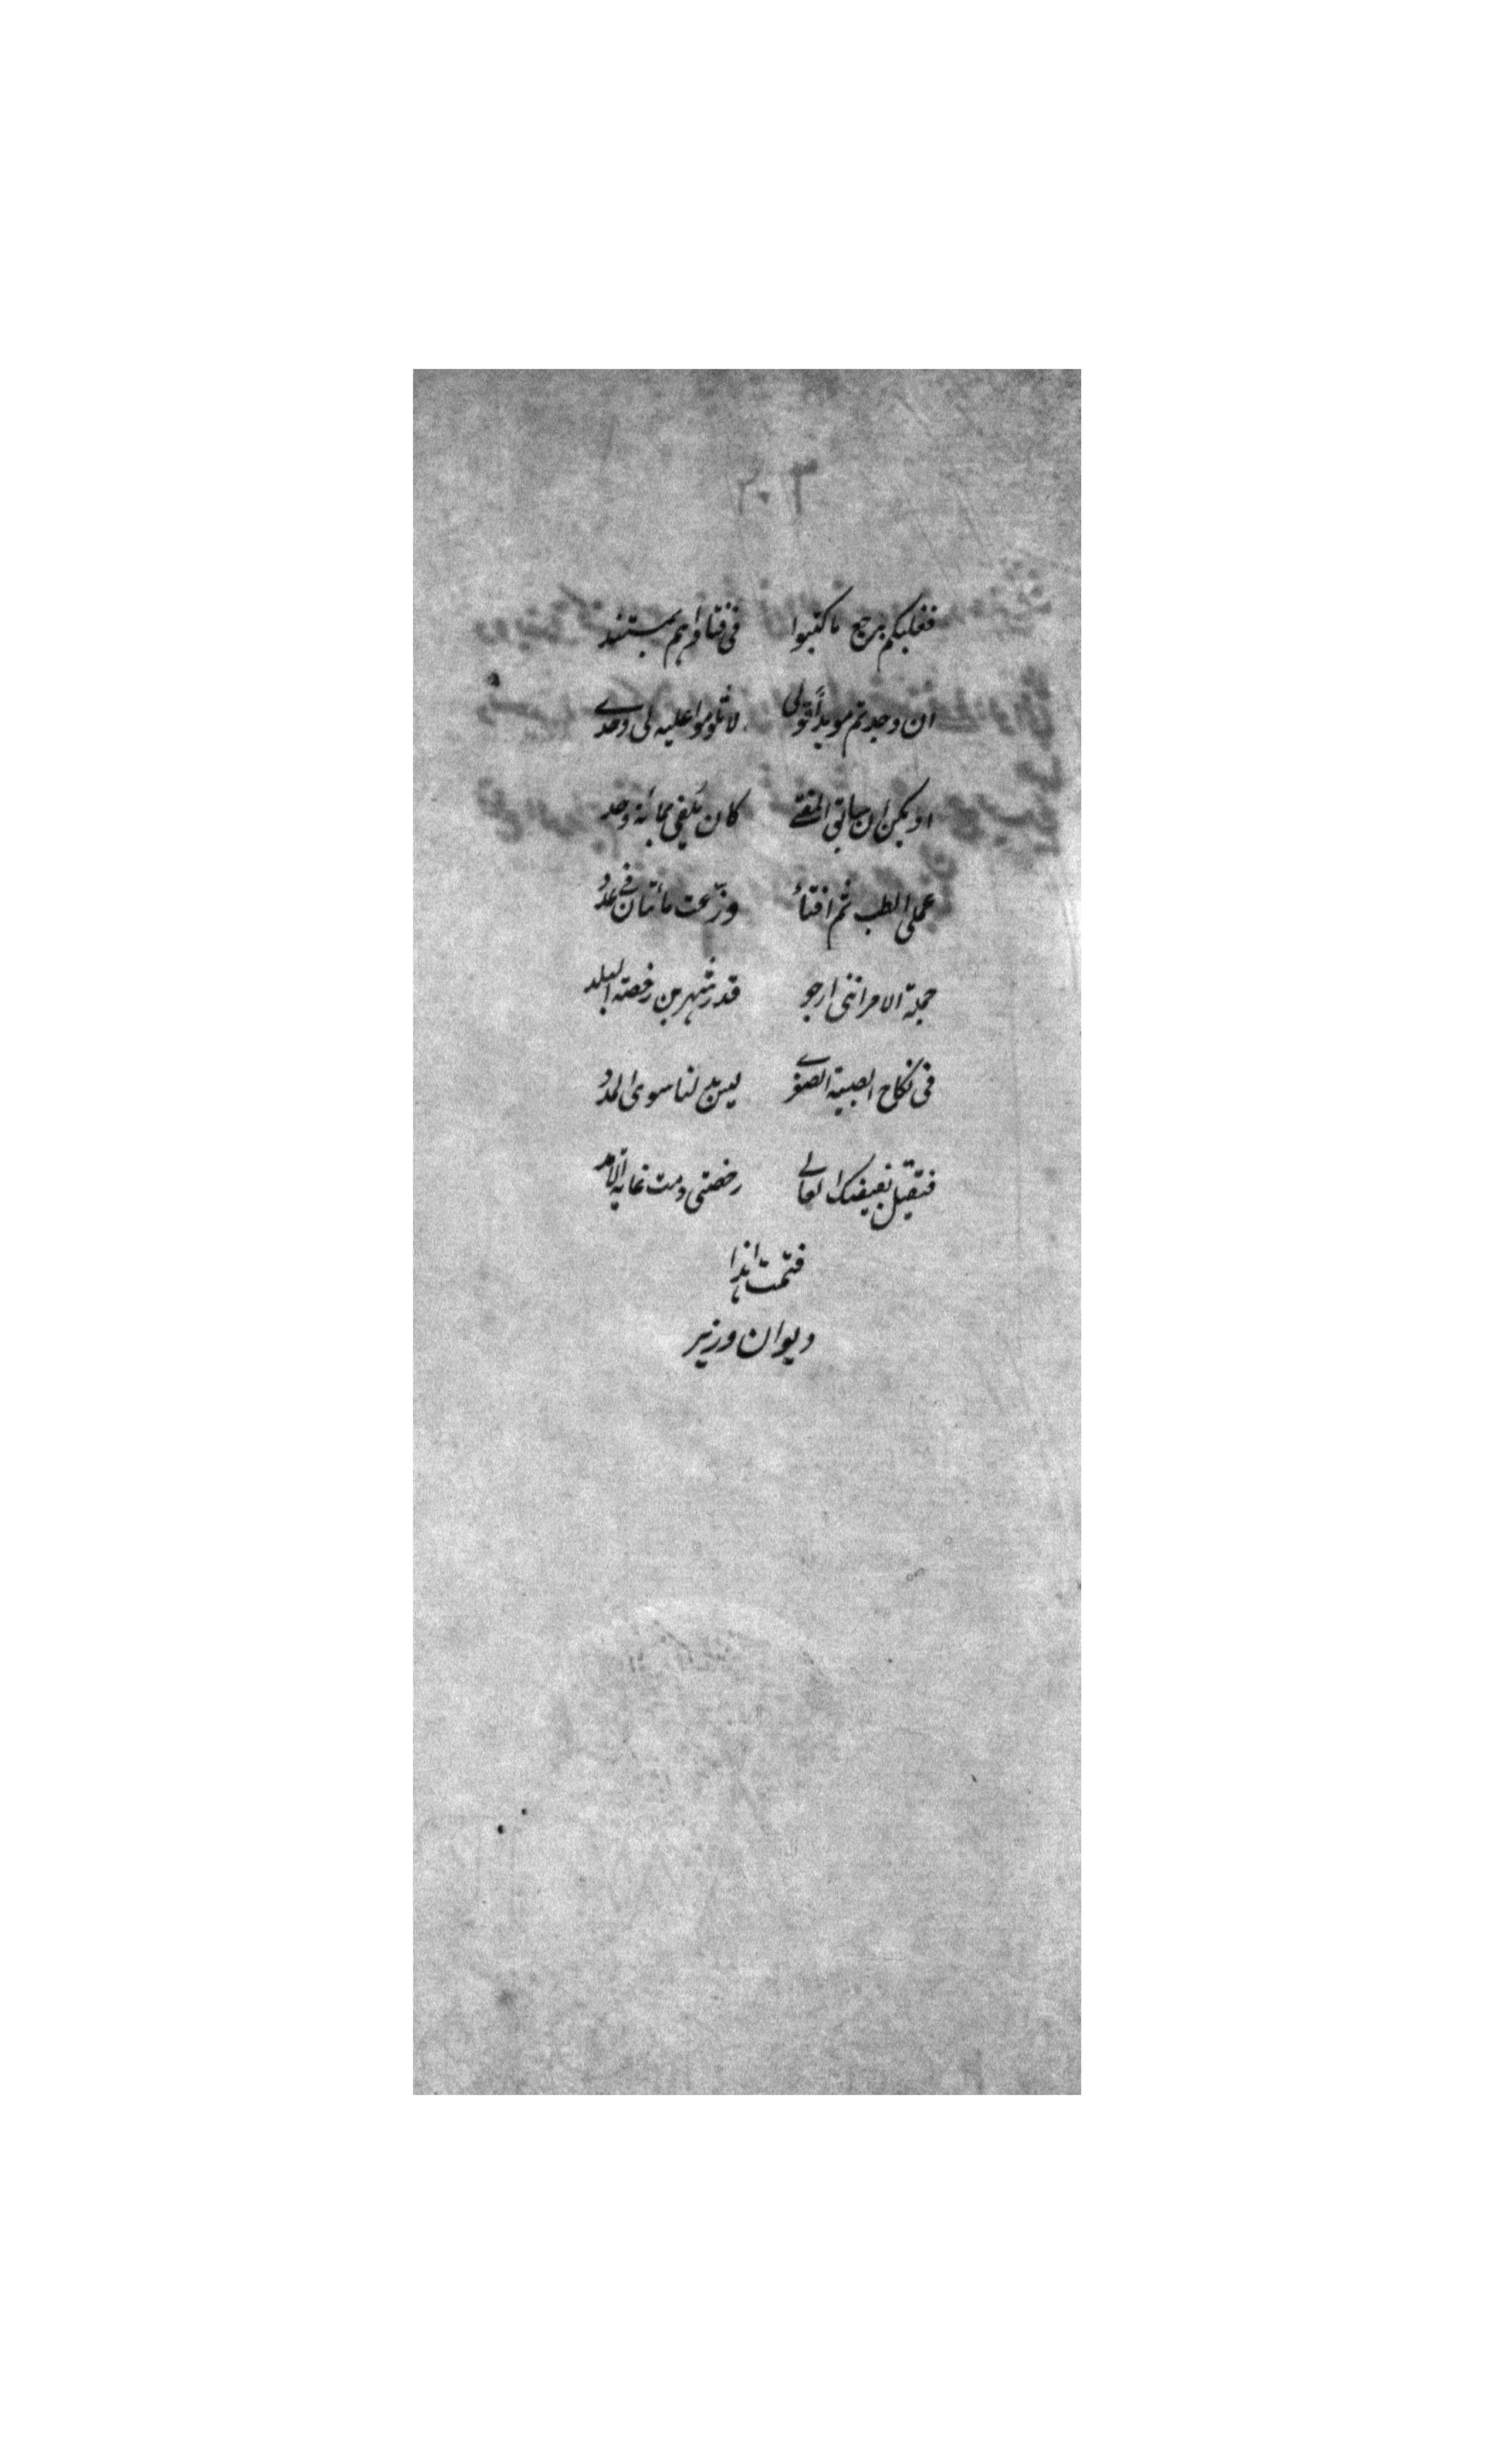 فعليكم برجع ما كتبوا في فتاواهم بمستند
ان وجدتم مويداً قولى لا تلوموا عليه لى وحدے
او يكن ان سابق المفتے كان يكفى بمائة وحد
عملى الطب ثم افتاءٌ وزّعت مائتان فے عدد
جملة الامر اننى ارجو قدر شهرين رخصة البلد
فى نكاح الصبية الصغرے ليس بدّ لنا سوى المدد
فتقبل بفيضك العالے رخصتى دمت غاية الامد
فتمت هذا
ديوان وزير